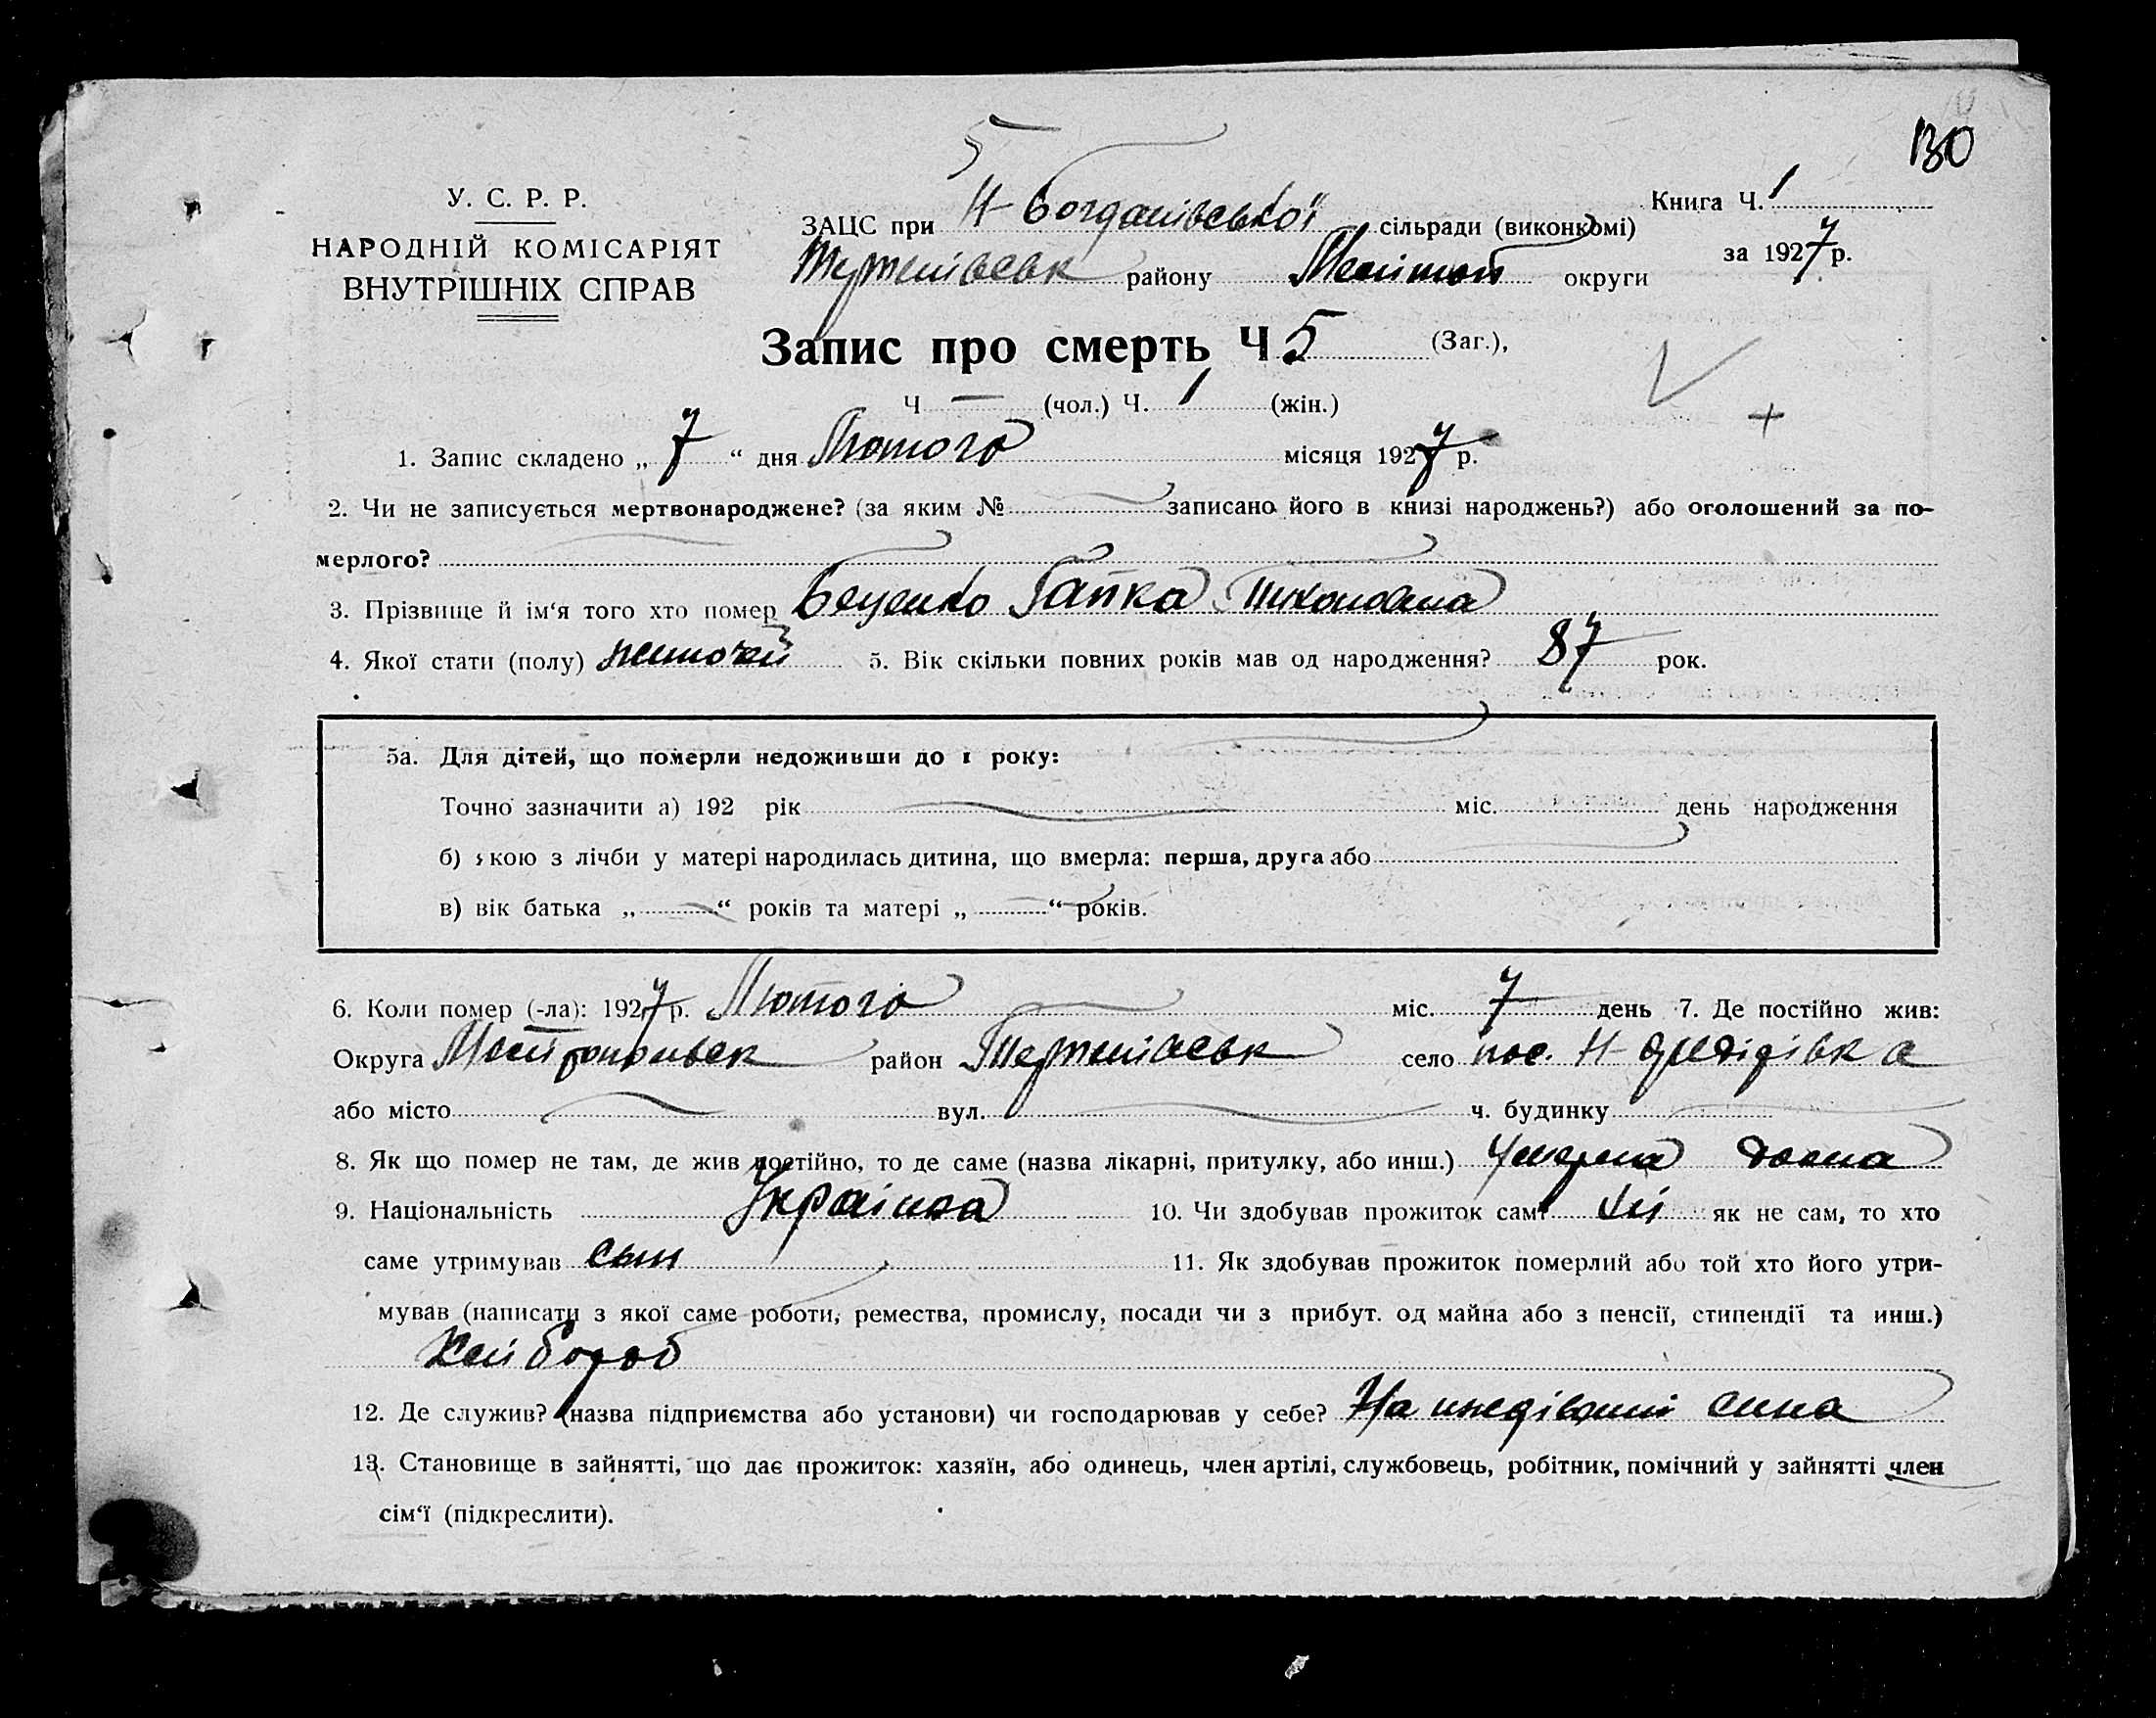 130
5
У. С. Р. Р.
НАРОДНІЙ КОМІСАРІЯТ
ВНУТРІШНІХ СПРАВ
ЗАЦС при Н-Богданівської сільради (виконкомі)
району Меліт округи
Книга Ч. 1
за 1927 р.
Запис про смерть Ч 5 (Заг.),
Ч — (чол.) Ч. 1 (жін.)
1. Запис складено „ 7 “ дня Лютого місяця 1927 р.
2. Чи не записується мертвонароджене? (за яким № записано його в книзі народжень?) або оголошений за по-
мерлого?
3. Прізвище й ім‘я того хто помер Беценко Гапка Тихоновна
4. Якої стати (полу) жіночої 5. Вік скільки повних років мав од народження? 87 рок.
5а. Для дітей, що померли недоживши до 1 року:
Точно зазначити а) 192 рік міс. день народження
б) якою з лічби у матері народилась дитина, що вмерла: перша, друга або
в) вік батька „ “ років та матері „ “ років.
6. Коли помер (-ла): 1927 р. Лютого міс. 7 день 7. Де постійно жив:
Округа район село пос. Н-
або місто вул. ч. будинку
8. Як що помер не там, де жив постійно, то де саме (назва лікарні, притулку, або инш.) Умерла дома
9. Національність Українка 10. Чи здобував прожиток сам? Ні як не сам, то хто
саме утримував сын 11. Як здобував прожиток померлий або той хто його утри-
мував (написати з якої саме роботи, ремества, промислу, посади чи з прибут. од майна або з пенсії, стипендії та инш.)
Хлібороб
12. Де служив? (назва підприємства або установи) чи господарював у себе? На иждівении сина
13. Становище в зайнятті, що дає прожиток: хазяїн, або одинець, член артілі, службовець, робітник, помічний у зайнятті член
сім‘ї (підкреслити).